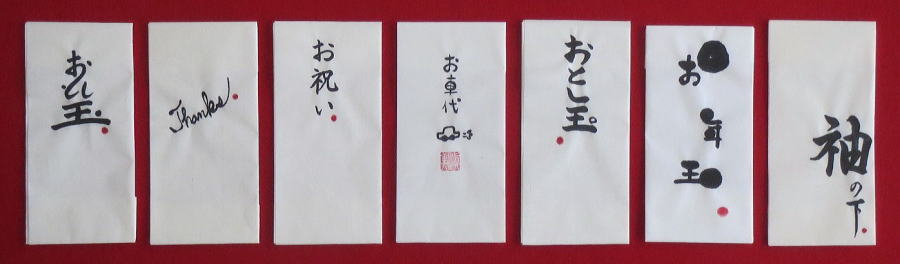 おとし玉
Thanks
お祝い
お車代
おとし玉
お年玉
袖の下